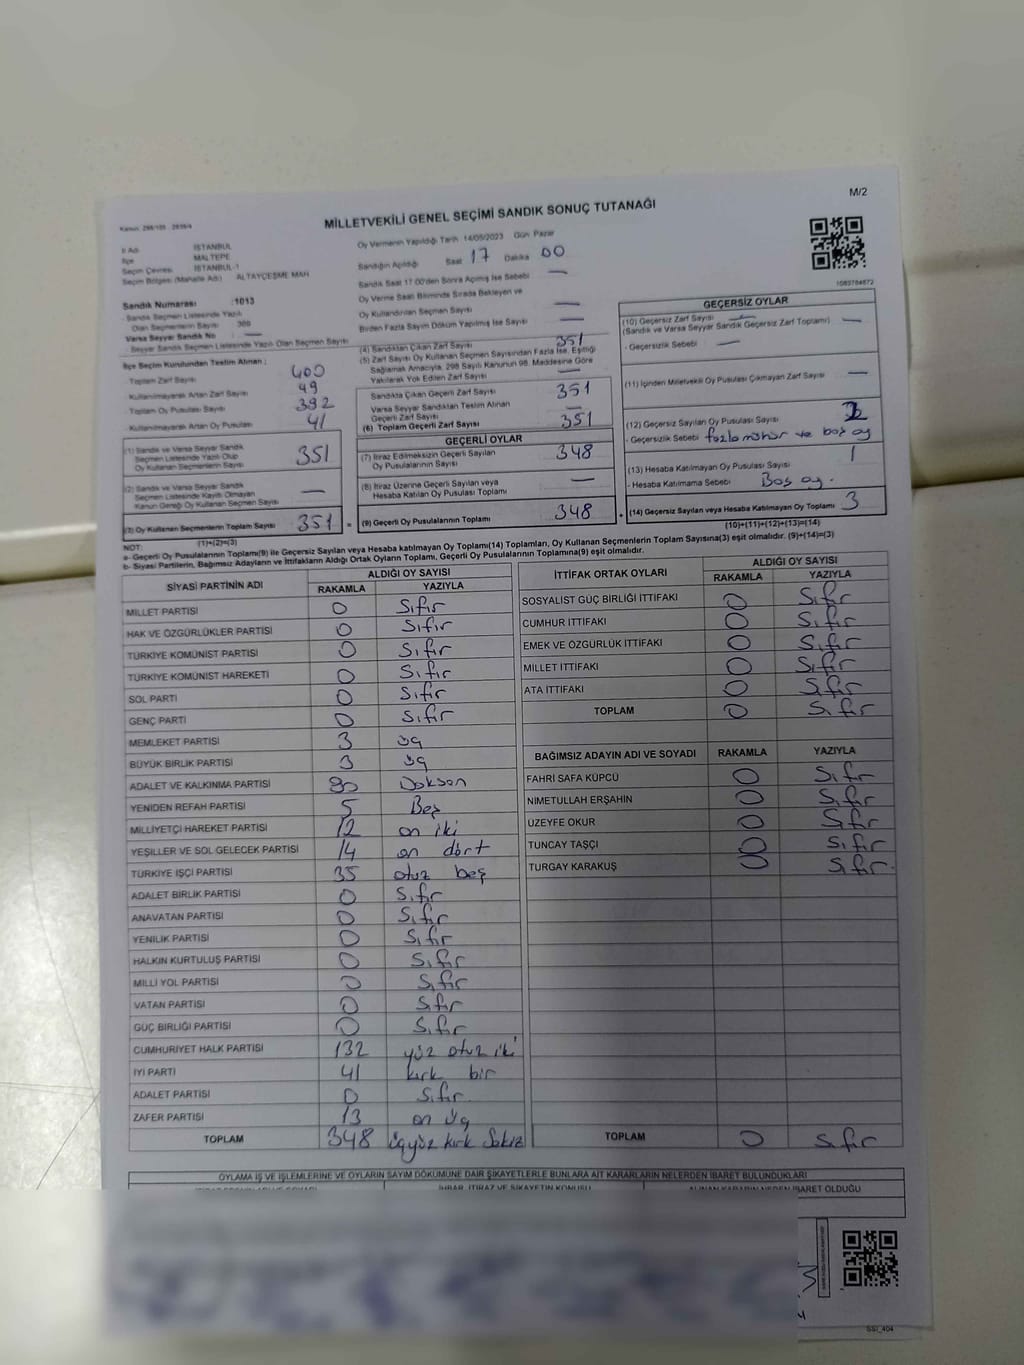 M/2
MİLLETVEKİLİ GENEL SEÇİMİ SANDIK SONUÇ TUTANAĞI
İl Adı İSTANBUL
İlçe MALTEPE
Seçim Çevresi İSTANBUL-1
Seçim Bölgesi (Mahalle Adı) ALTAYÇEŞME MAH
Oy Vermenin Yapıldığı Tarih 14/05/2023 Gün Pazar
Sandığın Açıldığı Saat 17 Dakika 00
Sandık Saat 17.00'den Sonra Açılmış İse Sebebi —
Oy Verme Saati Bitiminde Sırada Bekleyen ve
Oy Kullandırılan Seçmen Sayısı —
Birden Fazla Sayım Döküm Yapılmış İse Sayısı —
Sandık Numarası :1013
- Sandık Seçmen Listesinde Yazılı
Olan Seçmenlerin Sayısı
Varsa Seyyar Sandık No —
- Seyyar Sandık Seçmen Listesinde Yazılı Olan Seçmen Sayısı
İlçe Seçim Kurulundan Teslim Alınan ;
Toplam Zarf Sayısı 400
Kullanılmayarak Artan Zarf Sayısı 49
Toplam Oy Pusulası Sayısı 392
Kullanılmayarak Artan Oy Pusulası 41
(1) Sandık ve Varsa Seyyar Sandık
Seçmen Listesinde Yazılı Olup
Oy Kullanan Seçmenlerin Sayısı 351
(2) Sandık ve Varsa Seyyar Sandık
Seçmen Listesinde Kayıtlı Olmayan
Kanun Gereği Oy Kullanan Seçmen Sayısı —
(3) Oy Kullanan Seçmenlerin Toplam Sayısı 351
(1)+(2)=(3)
(4) Sandıktan Çıkan Zarf Sayısı 351
(5) Zarf Sayısı Oy Kullanan Seçmen Sayısından Fazla İse, Eşitliği
Sağlamak Amacıyla, 298 Sayılı Kanunun 98. Maddesine Göre
Yakılarak Yok Edilen Zarf Sayısı —
Sandıkta Çıkan Geçerli Zarf Sayısı 351
Varsa Seyyar Sandıktan Teslim Alınan
Geçerli Zarf Sayısı —
(6) Toplam Geçerli Zarf Sayısı 351
GEÇERLİ OYLAR
(7) İtiraz Edilmeksizin Geçerli Sayılan
Oy Pusulalarının Sayısı 348
(8) İtiraz Üzerine Geçerli Sayılan veya
Hesaba Katılan Oy Pusulası Toplamı —
(9) Geçerli Oy Pusulalarının Toplamı 348
GEÇERSİZ OYLAR
(10) Geçersiz Zarf Sayısı —
(Sandık ve Varsa Seyyar Sandık Geçersiz Zarf Toplamı) —
- Geçersizlik Sebebi —
(11) İçinden Milletvekili Oy Pusulası Çıkmayan Zarf Sayısı —
(12) Geçersiz Sayılan Oy Pusulası Sayısı 2
- Geçersizlik Sebebi fazla mühür ve boş oy
(13) Hesaba Katılmayan Oy Pusulası Sayısı 1
- Hesaba Katılmama Sebebi Boş oy.
(14) Geçersiz Sayılan veya Hesaba Katılmayan Oy Toplamı 3
(10)+(11)+(12)+(13)=(14)
NOT:
a- Geçerli Oy Pusulalarının Toplamı(9) ile Geçersiz Sayılan veya Hesaba katılmayan Oy Toplamı(14) Toplamları, Oy Kullanan Seçmenlerin Toplam Sayısına(3) eşit olmalıdır. (9)+(14)=(3)
b- Siyasi Partilerin, Bağımsız Adayların ve İttifakların Aldığı Ortak Oyların Toplamı, Geçerli Oy Pusulalarının Toplamına(9) eşit olmalıdır.
SİYASİ PARTİNİN ADI ALDIĞI OY SAYISI
RAKAMLA YAZIYLA
MİLLET PARTİSİ 0 Sıfır
HAK VE ÖZGÜRLÜKLER PARTİSİ 0 Sıfır
TÜRKİYE KOMÜNİST PARTİSİ 0 Sıfır
TÜRKİYE KOMÜNİST HAREKETİ 0 Sıfır
SOL PARTİ 0 Sıfır
GENÇ PARTİ 0 Sıfır
MEMLEKET PARTİSİ 3 üç
BÜYÜK BİRLİK PARTİSİ 3 üç
ADALET VE KALKINMA PARTİSİ 90 Doksan
YENİDEN REFAH PARTİSİ 5 Beş
MİLLİYETÇİ HAREKET PARTİSİ 12 on iki
YEŞİLLER VE SOL GELECEK PARTİSİ 14 on dört
TÜRKİYE İŞÇİ PARTİSİ 35 otuz beş
ADALET BİRLİK PARTİSİ 0 Sıfır
ANAVATAN PARTİSİ 0 Sıfır
YENİLİK PARTİSİ 0 Sıfır
HALKIN KURTULUŞ PARTİSİ 0 Sıfır
MİLLİ YOL PARTİSİ 0 Sıfır
VATAN PARTİSİ 0 Sıfır
GÜÇ BİRLİĞİ PARTİSİ 0 Sıfır
CUMHURİYET HALK PARTİSİ 132 yüz otuz iki
İYİ PARTİ 41 kırk bir
ADALET PARTİSİ 0 Sıfır
ZAFER PARTİSİ 13 on üç
TOPLAM 348 üçyüz kırk Sekiz
İTTİFAK ORTAK OYLARI ALDIĞI OY SAYISI
RAKAMLA YAZIYLA
SOSYALİST GÜÇ BİRLİĞİ İTTİFAKI 0 Sıfır
CUMHUR İTTİFAKI 0 Sıfır
EMEK VE ÖZGÜRLÜK İTTİFAKI 0 Sıfır
MİLLET İTTİFAKI 0 Sıfır
ATA İTTİFAKI 0 Sıfır
TOPLAM 0 Sıfır
BAĞIMSIZ ADAYIN ADI VE SOYADI RAKAMLA YAZIYLA
FAHRİ SAFA KÜPCÜ 0 Sıfır
NİMETULLAH ERŞAHİN 0 Sıfır
ÜZEYFE OKUR 0 Sıfır
TUNCAY TAŞÇI 0 Sıfır
TURGAY KARAKUŞ 0 Sıfır
TOPLAM 0 Sıfır
OYLAMA İŞ VE İŞLEMLERİNE VE OYLARIN SAYIM DÖKÜMÜNE DAİR ŞİKAYETLERLE BUNLARA AİT KARARLARIN NELERDEN İBARET BULUNDUKLARI
İHBAR, İTİRAZ VE ŞİKAYETİN KONUSU